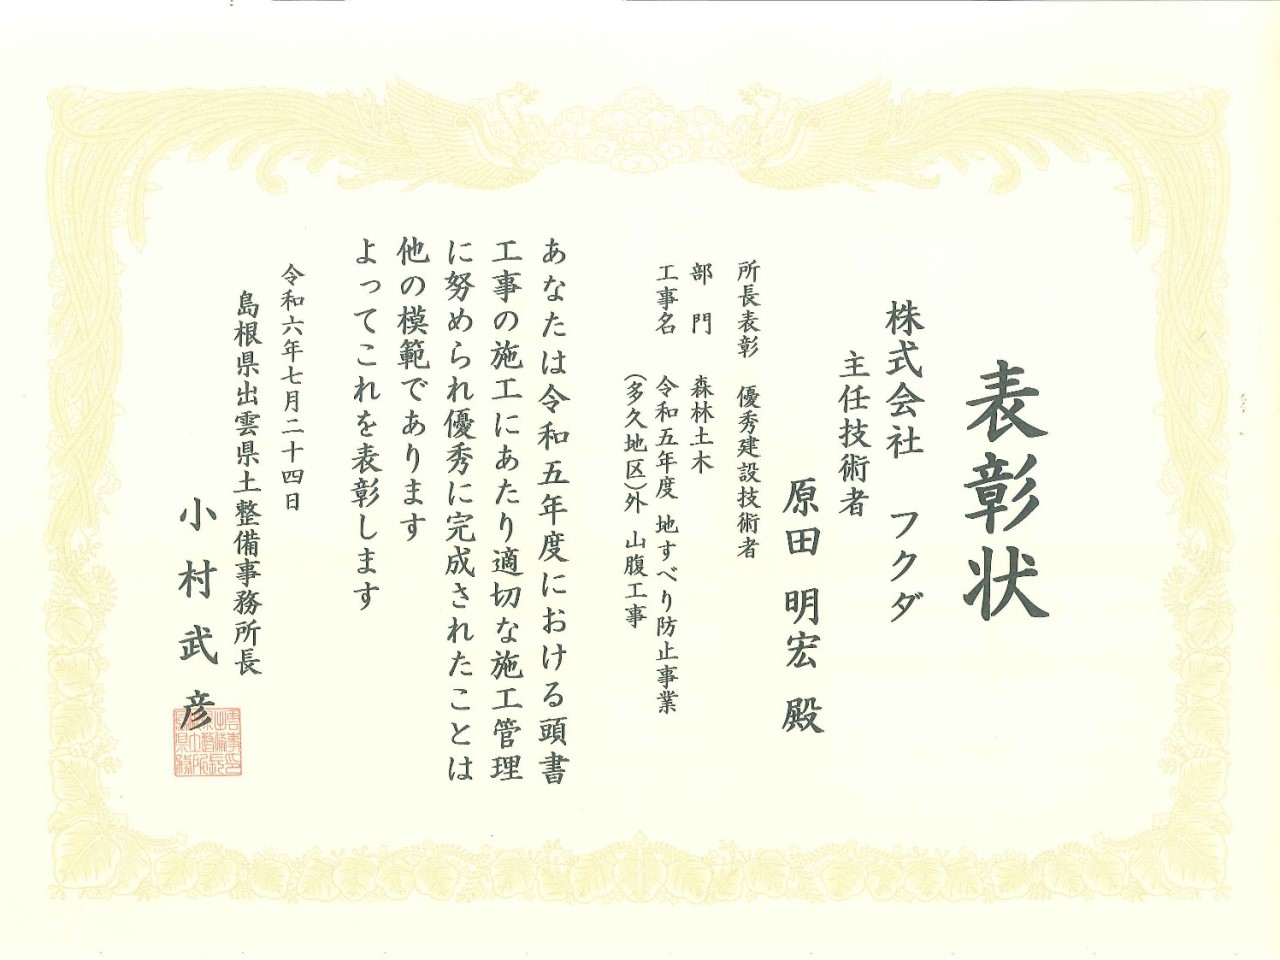 表彰状
株式会社 フクダ
主任技術者
原田 明宏 殿
所長表彰 優秀建設技術者
部門 森林土木
工事名 令和五年度 地すべり防止事業
(多久地区)外 山腹工事
あなたは令和五年度における頭書
工事の施工にあたり適切な施工管理
に努められ優秀に完成されたことは
他の模範であります
よってこれを表彰します
令和六年七月二十四日
島根県出雲県土整備事務所長
小村武彦